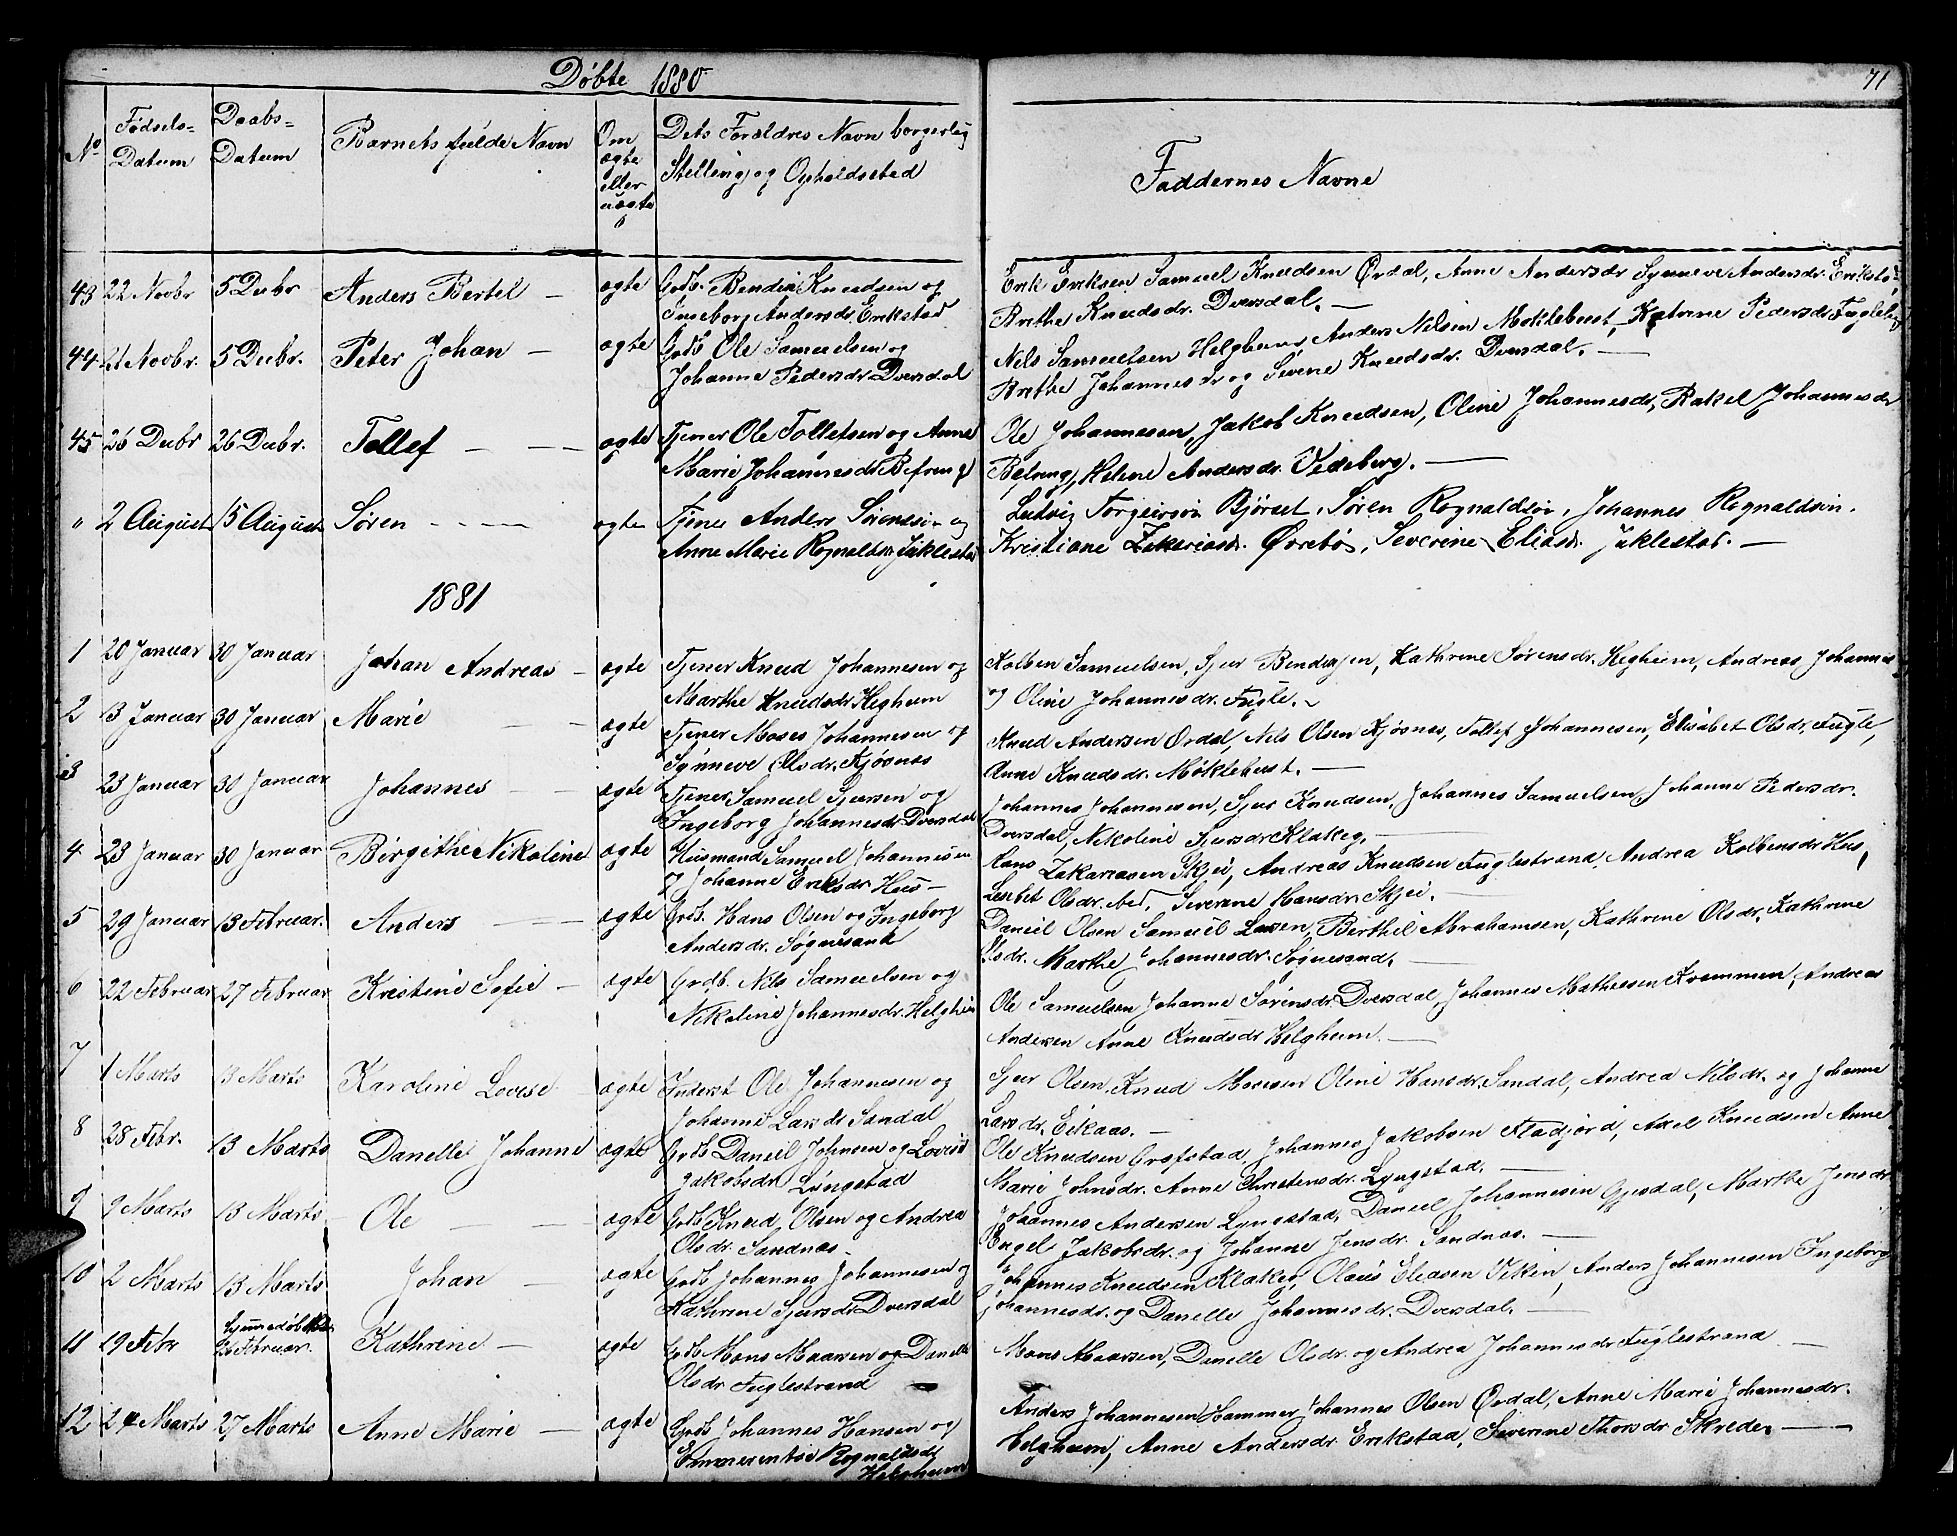 Døbte 1880
71
No
Fødsels-
Datum
Daabs-
Datum
Barnets fulde Navn
Om
ægte
eller
uægte
Dets Forældres Navn borgerlig
Stilling og Opholdssted
Faddernes Navne
43 22 Novbr 5 Decbr Anders Bertel — ægte Grdb. Bendix Knudsen og
Ingeborg Andersdr. Erikstad
Erik Eriksen Samuel Knudsen Ørdal, Anne Andersdr Synneve Andersdr. Erikstad
Brethe Knudsdr. Dvergsdal. —
44 21 Novbr. 5 Decbr. Peter Johan — ægte Grdb Ole Samuelsen og
Johanne Pedersdr Dversdal
Nils Samuelsen Helgheim, Anders Nilsen Møklebust, Katrine Pedersdr. Fugle
Brethe Johannesdr og Severine Knudsdr. Dversdal. —
45 26 Decbr 26 Decbr. Tollef — — ægte Tjener Ole Tollefsen og Anne
Marie Johannesdr
Ole Johannesen, Jakob Knudsen, Oline Johannesdr, Rakel Johannesdr
Helene Andersdr. Vedeberg. —
" 2 August 15 August Søren - - - - ægte Tjener Anders Sørensen og
Anne Marie Rognaldsdr Jaklestad
Ludvig Torgeirson Bjørset, Søren Rognaldson, Johannes Rognaldson.
Kristiane Zakariasdr. Ørebø, Severine Eliasdr. Jaklestad. —
1881
1 20 Januar 30 Januar Johan Andreas — ægte Tjener Knud Johannesen og
Marthe Knudsdr Hegheim
Kolben Samuelsen, Sjur Bendixen, Kathrine Sørensdr. Hegheim, Andreas Johannes
og Oline Johannesdr. Fugle. —
2 13 Januar 30 Januar Marie — — ægte Tjener Moses Johannesen og
Synneve Olsdr. Kjøsnæs
Knud Andersen Ørdal, Nils Olsen Kjøsnæs, Tollef Johannesen, Elisabet Olsdr. Fugle,
Anne Knudsdr. Møklebust. —
3 23 Januar 30 Januar Johannes — — ægte Tjener Samuel Sjursen og
Ingeborg Johannesdr Dversdal
Johannes Johannesen, Sjur Knudsen, Johannes Samuelsen, Johanne Pedersdr.
Dversdal, Nikoline Sjursdr Klakeg. —
4 23 Januar 30 Januar Birgithe Nikoline ægte Husmand Samuel Johannesen
og Johanne Eriksdr Hus —
Hans Zakariasen Skjei, Andreas Knudsen Fuglestrand, Andrea Kolbensdr. Hus,
Lisbet Olsdr. ibd, Severine Hansdr. Skjei. —
5 29 Januar 13 Februar. Anders — — ægte Grdb. Hans Olsen og Ingeborg
Andersdr. Søgnesand
Daniel Olsen Samuel Larsen, Berthel Abrahamsen, Kathrine Olsdr. Kathrine
Olsdr. Marthe Johannesdr. Søgnesand. —
6 22 Februar 27 Februar Kristine Sofie — ægte Grdb. Nils Samuelsen og
Nikoline Johannesdr. Helgheim
Ole Samuelsen Johanne Sørensdr Dversdal, Johannes Mathiesen Kvammen, Andreas
Andersen Anne Knudsdr Helgheim. —
7 1 Marts 13 Marts Karoline Lovise — ægte Inderst Ole Johannesen og
Johanne Larsdr Sandal
Sjur Olsen, Knud Mosesen Oline Hansdr. Sandal, Andrea Nilsdr. og Johanne
Larsdr. Eikaas. —
8 28 Febr. 13 Marts Danelle Johanne ægte Grdb Daniel Johnsen og Lovise
Jakobsdr Lyngstad
Ole Knudsen Grøfstad, Johannes Jakobsen Stadjord, Axel Knudsen Anne
Marie Johnsdr. Anne Christensdr. Lyngstad. —
9 9 Marts 13 Marts Ole — — ægte Grdb Knud Olsen og Andrea
Olsdr. Sandnæs —
Johannes Andersen Lyngstad, Daniel Johannesen Gjesdal, Marthe Jensdr
Engel Jakobsdr. og Johanne Jensdr. Sandnæs. —
10 2 Marts 13 Marts Johan — ægte Grdb Johannes Johannesen og
Kathrine Sjursdr Dversdal
Johannes Knudsen Klakeg, Olaus Eliasen Viken, Anders Johannesen Ingeborg
Johannesdr. og Danelle Johannesdr. Dversdal. —
11 19 Febr Hjemmedøbt
Februar. Kathrine — ægte Grdb Mons Monsen og Danelle
Olsdr Fuglestrand
Mons Monsen, Danelle Olsdr. og Andrea Johannesdr Fuglestrand —
12 24 Marts 27 Marts Anne Marie — ægte Grdb Johannes Hansen og
Emmerentse Rognaldsdr
Helgheim
Anders Johannesen Hammer Johannes Olsen Ørdal, Anne Marie Johannesdr.
Helgheim, Anne Andersdr Erikstad, Severine Thorsdr Skrede. —